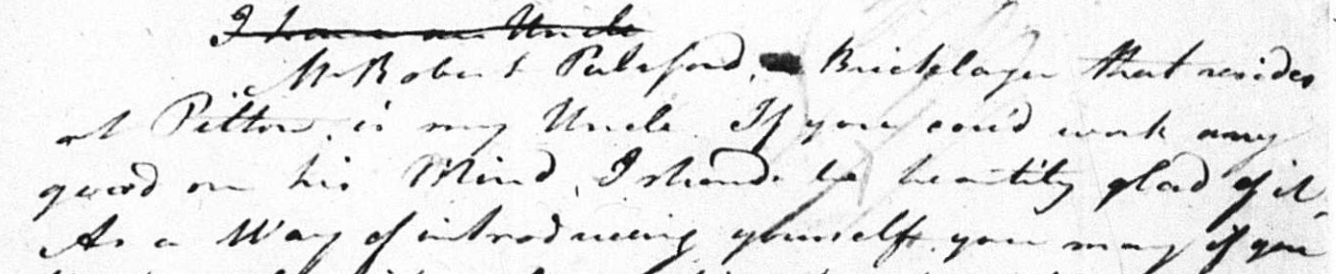 I have an Uncle
Mr Robert Pulsford, a Bricklayer that resides
at Pilton, is my Uncle. If you cou'd work any
good on his Mind, I shou'd be heartily glad of it,
As a Way of introducing yourself, you may if you